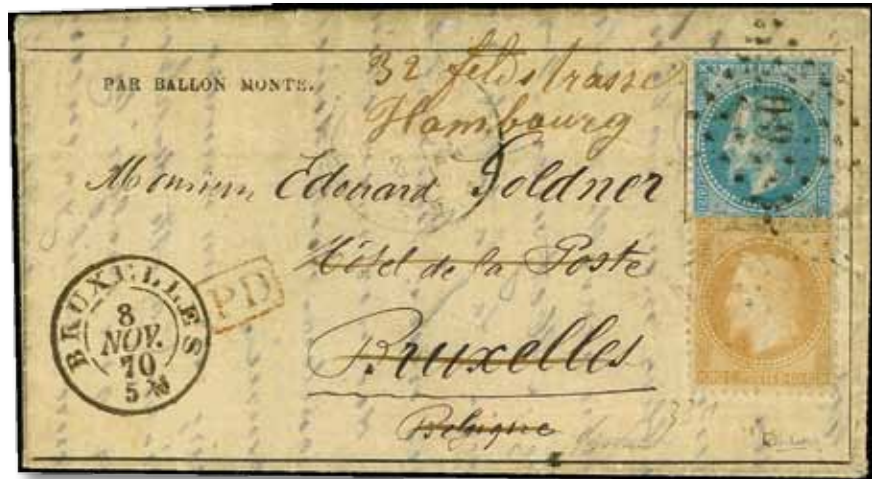 PAR BALLON MONTÉ.
32 feldstrasse
Hambourg
Monsieur Edouard Goldner
Hôtel de la Poste
Bruxelles
Belgique
BRUXELLES
8
NOV.
70
5
PD
60